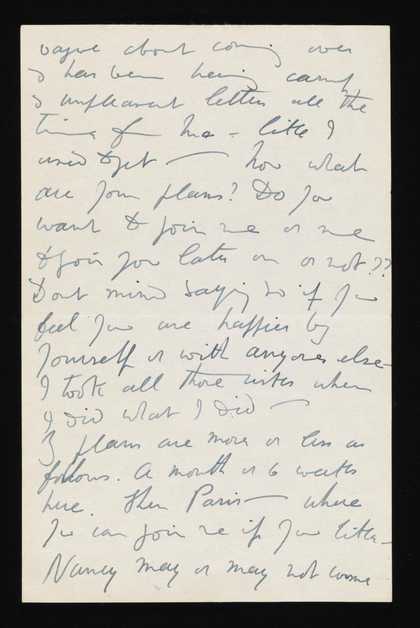 vague about coming over
& has been being
& unpleasant letters all the
time from me – like I
used to get — Now what
are your plans? Do you
want to join me or me
to join you later on or not??
Dont mind saying so if you
feel you are happier by
yourself or with anyone else–
I took all those risks when
I did what I did —
My plans are more or less as
follows. A month or 6 weeks
here. Then Paris — where
you can join me if you like –
Nancy may or may not come